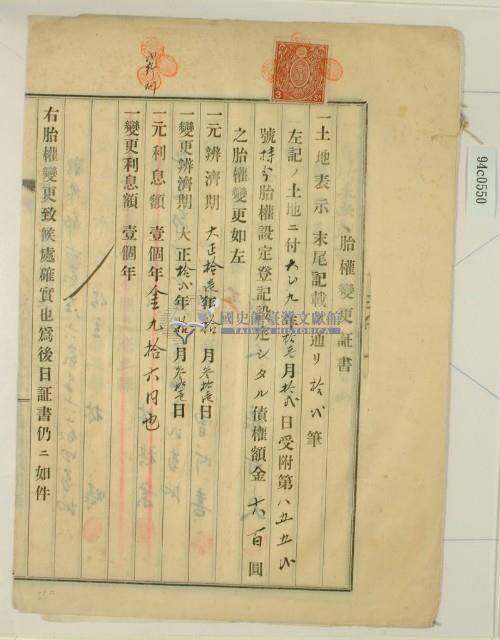 胎權變更証書
一土地表示 末尾記載ノ通リ 拾弐筆
左記ノ土地ニ付大正九年拾壱月拾弐日受附第八五五六
號持分胎權設定登記設定シタル債權額金六百圓
之胎權變更如左
一元辨濟期 大正拾壱年拾月参拾壱日
一變更辨濟期 大正拾弐年拾月参拾壱日
一元利息額 壹個年金九拾六円也
一變更利息額 壹個年
右胎權變更致候處確實也爲後日証書仍ニ如件
國史館臺灣文獻館
TAIWAN HISTORICA
94c0550